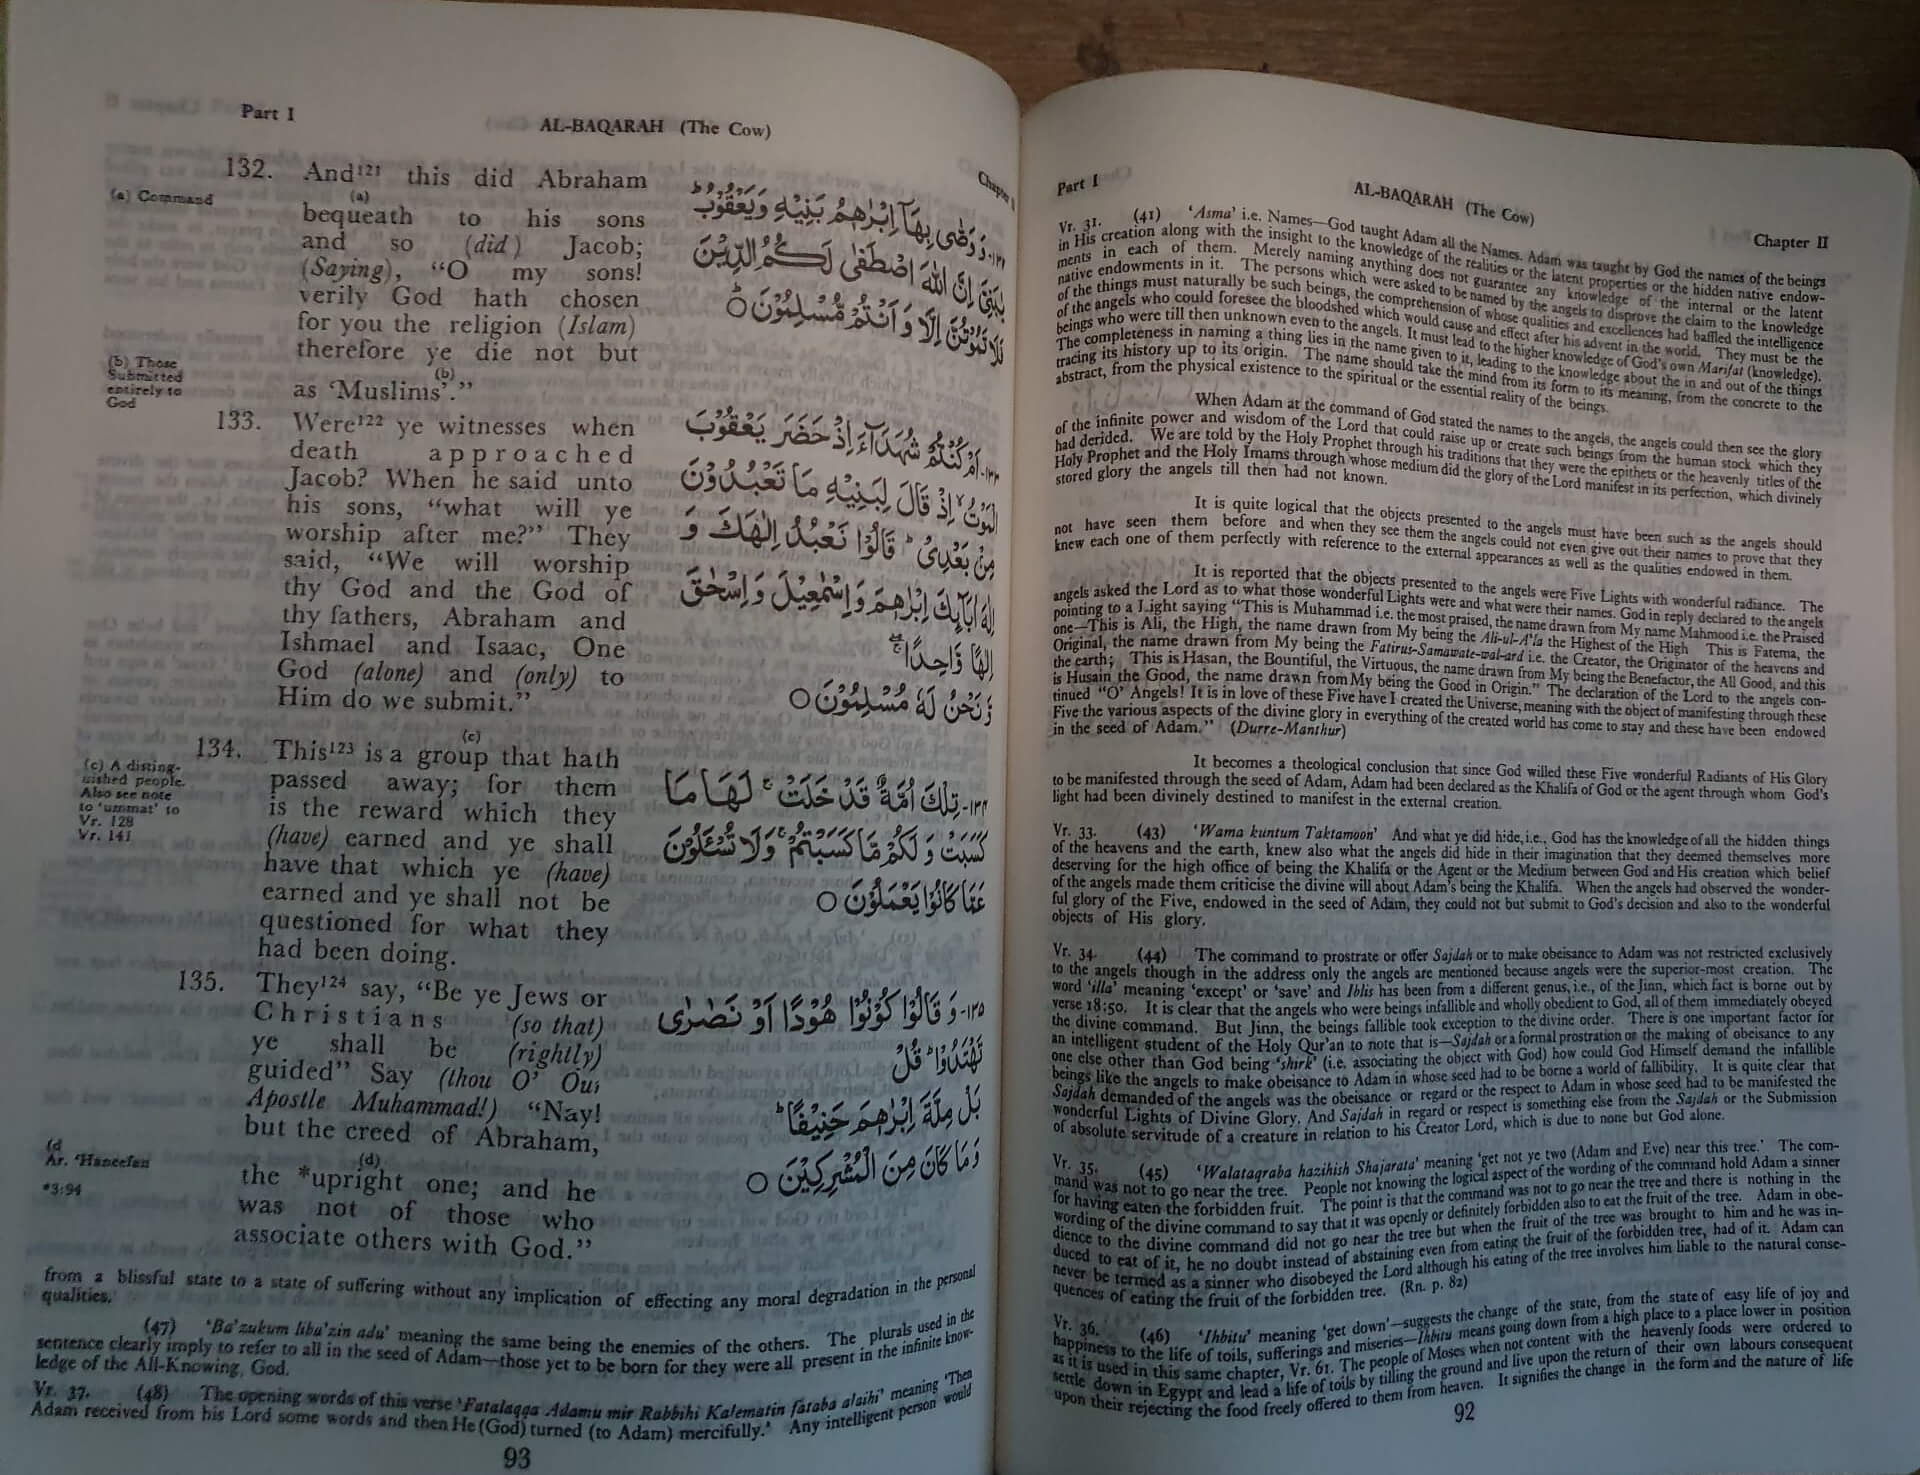 Part I
AL-BAQARAH (The Cow)
Chapter II
Vr. 31. (41) 'Asma' i.e. Names—God taught Adam all the Names. Adam was taught by God the names of the beings
in His creation along with the insight to the knowledge of the realities or the latent properties or the hidden native endow-
ments in each of them. Merely naming anything does not guarantee any knowledge of the internal or the latent
native endowments in it. The persons which were asked to be named by the angels to disprove the claim to the knowledge
of the things must naturally be such beings, the comprehension of whose qualities and excellences had baffled the intelligence
of the angels who could foresee the bloodshed which would cause and effect after his advent in the world. They must be the
beings who were till then unknown even to the angels. It must lead to the higher knowledge of God's own Marifat (knowledge).
The completeness in naming a thing lies in the name given to it, leading to the knowledge about the in and out of the things
tracing its history up to its origin. The name should take the mind from its form to its meaning, from the concrete to the
abstract, from the physical existence to the spiritual or the essential reality of the beings.
When Adam at the command of God stated the names to the angels, the angels could then see the glory
of the infinite power and wisdom of the Lord that could raise up or create such beings from the human stock which they
had derided. We are told by the Holy Prophet through his traditions that they were the epithets or the heavenly titles of the
Holy Prophet and the Holy Imams through whose medium did the glory of the Lord manifest in its perfection, which divinely
stored glory the angels till then had not known.
It is quite logical that the objects presented to the angels must have been such as the angels should
not have seen them before and when they see them the angels could not even give out their names to prove that they
knew each one of them perfectly with reference to the external appearances as well as the qualities endowed in them.
It is reported that the objects presented to the angels were Five Lights with wonderful radiance. The
angels asked the Lord as to what those wonderful Lights were and what were their names. God in reply declared to the angels
pointing to a Light saying "This is Muhammad i.e. the most praised, the name drawn from My name Mahmood i.e. the Praised
one—This is Ali, the High, the name drawn from My being the Ali-ul-A'la the Highest of the High This is Fatema, the
Original, the name drawn from My being the Fatirus-Samawate-wal-ard i.e. the Creator, the Originator of the heavens and
the earth; This is Hasan, the Bountiful, the Virtuous, the name drawn from My being the Benefactor, the All Good, and this
is Husain the Good, the name drawn from My being the Good in Origin." The declaration of the Lord to the angels con-
tinued "O' Angels! It is in love of these Five have I created the Universe, meaning with the object of manifesting through these
Five the various aspects of the divine glory in everything of the created world has come to stay and these have been endowed
in the seed of Adam." (Durre-Manthur)
It becomes a theological conclusion that since God willed these Five wonderful Radiants of His Glory
to be manifested through the seed of Adam, Adam had been declared as the Khalifa of God or the agent through whom God's
light had been divinely destined to manifest in the external creation.
Vr. 33. (43) 'Wama kuntum Taktamoon' And what ye did hide, i.e., God has the knowledge of all the hidden things
of the heavens and the earth, knew also what the angels did hide in their imagination that they deemed themselves more
deserving for the high office of being the Khalifa or the Agent or the Medium between God and His creation which belief
of the angels made them criticise the divine will about Adam's being the Khalifa. When the angels had observed the wonder-
ful glory of the Five, endowed in the seed of Adam, they could not but submit to God's decision and also to the wonderful
objects of His glory.
Vr. 34. (44) The command to prostrate or offer Sajdah or to make obeisance to Adam was not restricted exclusively
to the angels though in the address only the angels are mentioned because angels were the superior-most creation. The
word 'illa' meaning 'except' or 'save' and Iblis has been from a different genus, i.e., of the Jinn, which fact is borne out by
verse 18:50. It is clear that the angels who were beings infallible and wholly obedient to God, all of them immediately obeyed
the divine command. But Jinn, the beings fallible took exception to the divine order. There is one important factor for
an intelligent student of the Holy Qur'an to note that is—Sajdah or a formal prostration or the making of obeisance to any
one else other than God being 'shirk' (i.e. associating the object with God) how could God Himself demand the infallible
beings like the angels to make obeisance to Adam in whose seed had to be borne a world of fallibility. It is quite clear that
Sajdah demanded of the angels was the obeisance or regard or the respect to Adam in whose seed had to be manifested the
wonderful Lights of Divine Glory. And Sajdah in regard or respect is something else from the Sajdah or the Submission
of absolute servitude of a creature in relation to his Creator Lord, which is due to none but God alone.
Vr. 35. (45) 'Walataqraba hazihish Shajarata' meaning 'get not ye two (Adam and Eve) near this tree.' The com-
mand was not to go near the tree. People not knowing the logical aspect of the wording of the command hold Adam a sinner
for having eaten the forbidden fruit. The point is that the command was not to go near the tree and there is nothing in the
wording of the divine command to say that it was openly or definitely forbidden also to eat the fruit of the tree. Adam in obe-
dience to the divine command did not go near the tree but when the fruit of the tree was brought to him and he was in-
duced to eat of it, he no doubt instead of abstaining even from eating the fruit of the forbidden tree, had of it. Adam can
never be termed as a sinner who disobeyed the Lord although his eating of the tree involves him liable to the natural conse-
quences of eating the fruit of the forbidden tree. (Rn. p. 82)
Vr. 36. (46) 'Ihbitu' meaning 'get down'—suggests the change of the state, from the state of easy life of joy and
happiness to the life of toils, sufferings and miseries—Ihbitu means going down from a high place to a place lower in position
as it is used in this same chapter, Vr. 61. The people of Moses when not content with the heavenly foods were ordered to
settle down in Egypt and lead a life of toils by tilling the ground and live upon the return of their own labours consequent
upon their rejecting the food freely offered to them from heaven. It signifies the change in the form and the nature of life
92
Part I
AL-BAQARAH (The Cow)
Chapter
132. And¹²¹ this did Abraham
(a)
bequeath to his sons
and so (did) Jacob;
(Saying), "O my sons!
verily God hath chosen
for you the religion (Islam)
therefore ye die not but
(b)
as 'Muslims'."
(a) Command
(b) Those
Submitted
entirely to
God
١٣٢- وَوَصّٰى بِهَآ اِبْرٰهٖمُ بَنِيْهِ وَيَعْقُوْبُ ؕ
يٰبَنِىَّ اِنَّ اللّٰهَ اصْطَفٰى لَكُمُ الدِّيْنَ
فَلَا تَمُوْتُنَّ اِلَّا وَاَنْتُمْ مُّسْلِمُوْنَ ؕ
133. Were¹²² ye witnesses when
death approached
Jacob? When he said unto
his sons, "what will ye
worship after me?" They
said, "We will worship
thy God and the God of
thy fathers, Abraham and
Ishmael and Isaac, One
God (alone) and (only) to
Him do we submit."
١٣٣- اَمْ كُنْتُمْ شُهَدَآءَ اِذْ حَضَرَ يَعْقُوْبَ
الْمَوْتُ ۙ اِذْ قَالَ لِبَنِيْهِ مَا تَعْبُدُوْنَ
مِنْۢ بَعْدِىْ ؕ قَالُوْا نَعْبُدُ اِلٰهَكَ وَ
اِلٰهَ اٰبَآئِكَ اِبْرٰهٖمَ وَاِسْمٰعِيْلَ وَاِسْحٰقَ
اِلٰهًا وَّاحِدًا ۚ
وَّنَحْنُ لَهٗ مُسْلِمُوْنَ ○
(c)
134. This¹²³ is a group that hath
passed away; for them
is the reward which they
(have) earned and ye shall
have that which ye (have)
earned and ye shall not be
questioned for what they
had been doing.
(c) A disting-
uished people.
Also see note
to 'ummat' to
Vr. 128
Vr. 141
١٣٤- تِلْكَ اُمَّةٌ قَدْ خَلَتْ ۚ لَهَا مَا
كَسَبَتْ وَلَكُمْ مَّا كَسَبْتُمْ ۚ وَلَا تُسْئَلُوْنَ
عَمَّا كَانُوْا يَعْمَلُوْنَ ○
135. They¹²⁴ say, "Be ye Jews or
Christians (so that)
ye shall be (rightly)
guided" Say (thou O' Our
Apostle Muhammad!) "Nay!
but the creed of Abraham,
(d)
the *upright one; and he
was not of those who
associate others with God."
(d
Ar. 'Haneefan
*3:94
١٣٥- وَقَالُوْا كُوْنُوْا هُوْدًا اَوْ نَصٰرٰى
تَهْتَدُوْا ؕ قُلْ
بَلْ مِلَّةَ اِبْرٰهٖمَ حَنِيْفًا ؕ
وَمَا كَانَ مِنَ الْمُشْرِكِيْنَ ○
from a blissful state to a state of suffering without any implication of effecting any moral degradation in the personal
qualities.
(47) 'Ba'zukum liba'zin adu' meaning the same being the enemies of the others. The plurals used in the
sentence clearly imply to refer to all in the seed of Adam—those yet to be born for they were all present in the infinite know-
ledge of the All-Knowing, God.
Vr. 37. (48) The opening words of this verse 'Fatalaqqa Adamu mir Rabbihi Kalematin fataba alaihi' meaning 'Then
Adam received from his Lord some words and then He (God) turned (to Adam) mercifully.' Any intelligent person would
93